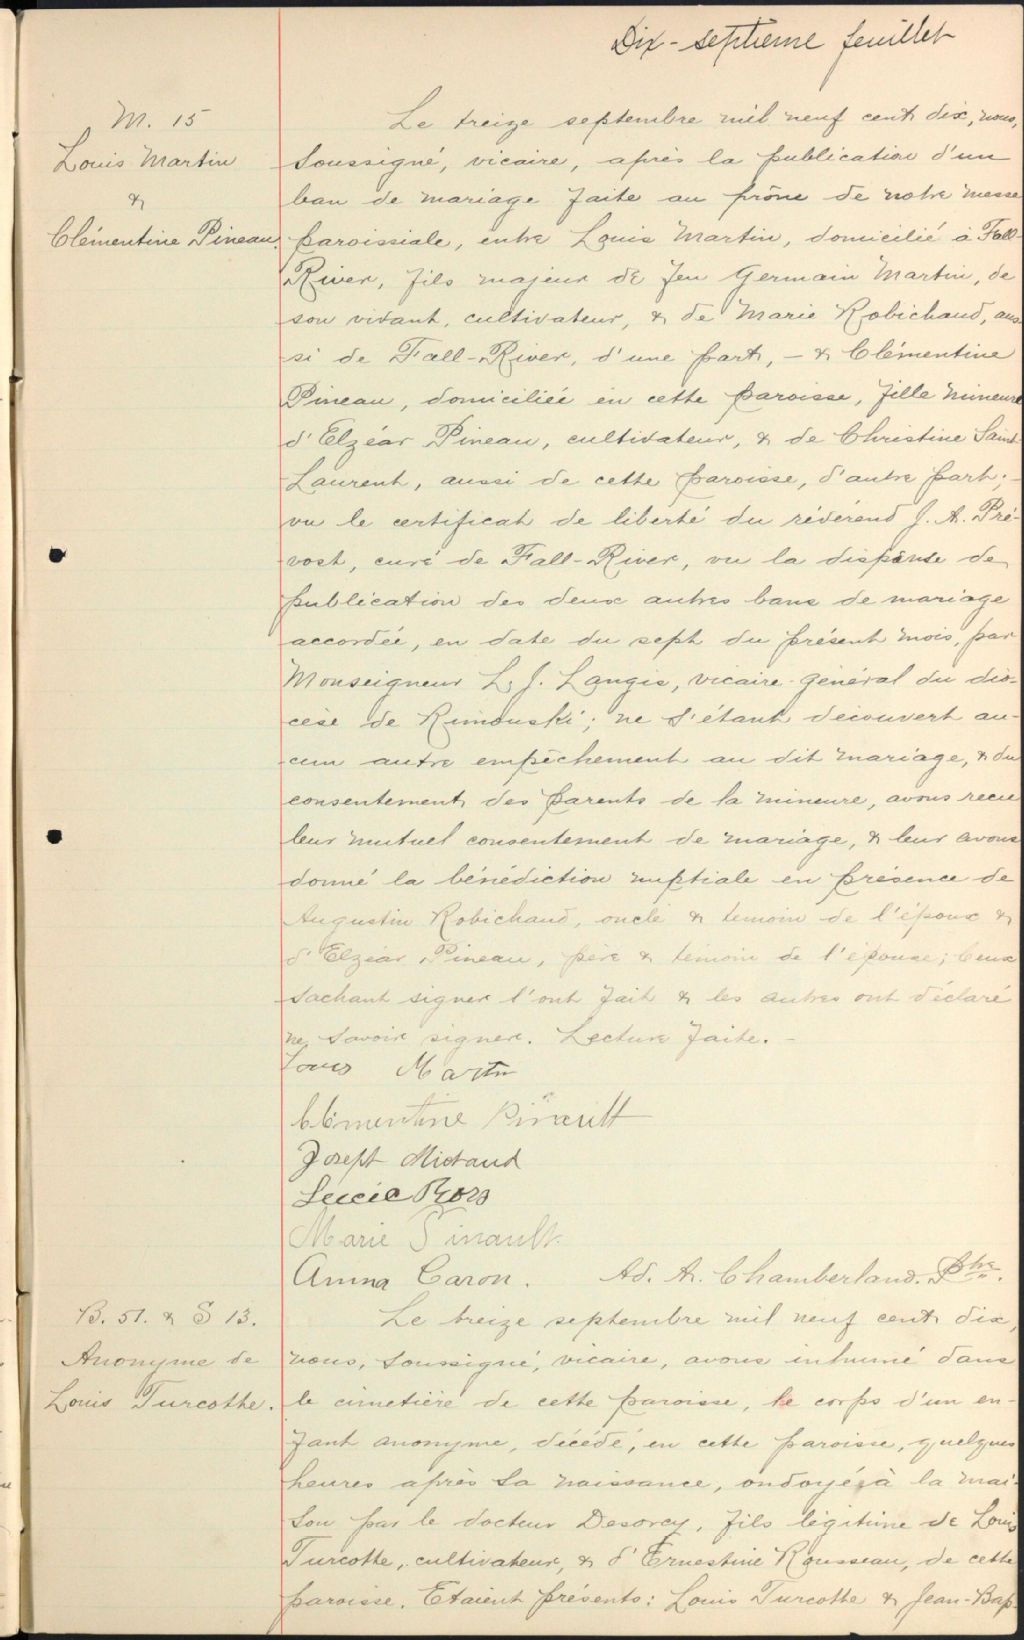 Dix-septième feuillet
M. 15
Louis Martin
&
Clémentine Pineau.
Le treize septembre mil neuf cent dix, nous,
soussigné, vicaire, après la publication d'un
ban de mariage faite au prône de notre messe
paroissiale, entre Louis Martin, domicilié à Fall-
River, fils majeur de feu Germain Martin, de
son vivant, cultivateur, & de Marie Robichaud, aus-
si de Fall-River, d'une part, - & Clémentine
Pineau, domiciliée en cette paroisse, fille mineure
d'Elzéar Pineau, cultivateur, & de Christine Saint-
Laurent, aussi de cette paroisse, d'autre part;
vu le certificat de liberté du révérend J. A. Pré-
vost, curé de Fall-River, vu la dispense de
publication des deux autres bans de mariage
accordée, en date du sept du présent mois, par
Monseigneur L. J. Langis, vicaire-général du dio-
cèse de Rimouski; ne s'étant découvert au-
cun autre empêchement au dit mariage, & du
consentement des parents de la mineure, avons reçu
leur mutuel consentement de mariage, & leur avons
donné la bénédiction nuptiale en présence de
Augustin Robichaud, oncle & témoin de l'époux &
d'Elzéar Pineau, père & témoin de l'épouse; ceux
sachant signer l'ont fait & les autres ont déclaré
ne savoir signer. Lecture faite. -
Louis Martin
Clémentine Pinault
Josept Michaud
Lucie Ross
Marie Pinault.
Anna Caron. Ad. A. Chamberland. Ptre.
B. 51. & S 13.
Anonyme de
Louis Turcotte.
Le treize septembre mil neuf cent dix,
nous, soussigné, vicaire, avons inhumé dans
le cimetière de cette paroisse, le corps d'un en-
fant anonyme, décédé, en cette paroisse, quelques
heures après sa naissance, ondoyé à la mai-
son par le docteur Desorcy, fils légitime de Louis
Turcotte, cultivateur, & d'Ernestine Rousseau, de cette
paroisse. Etaient présents: Louis Turcotte & Jean-Bap-